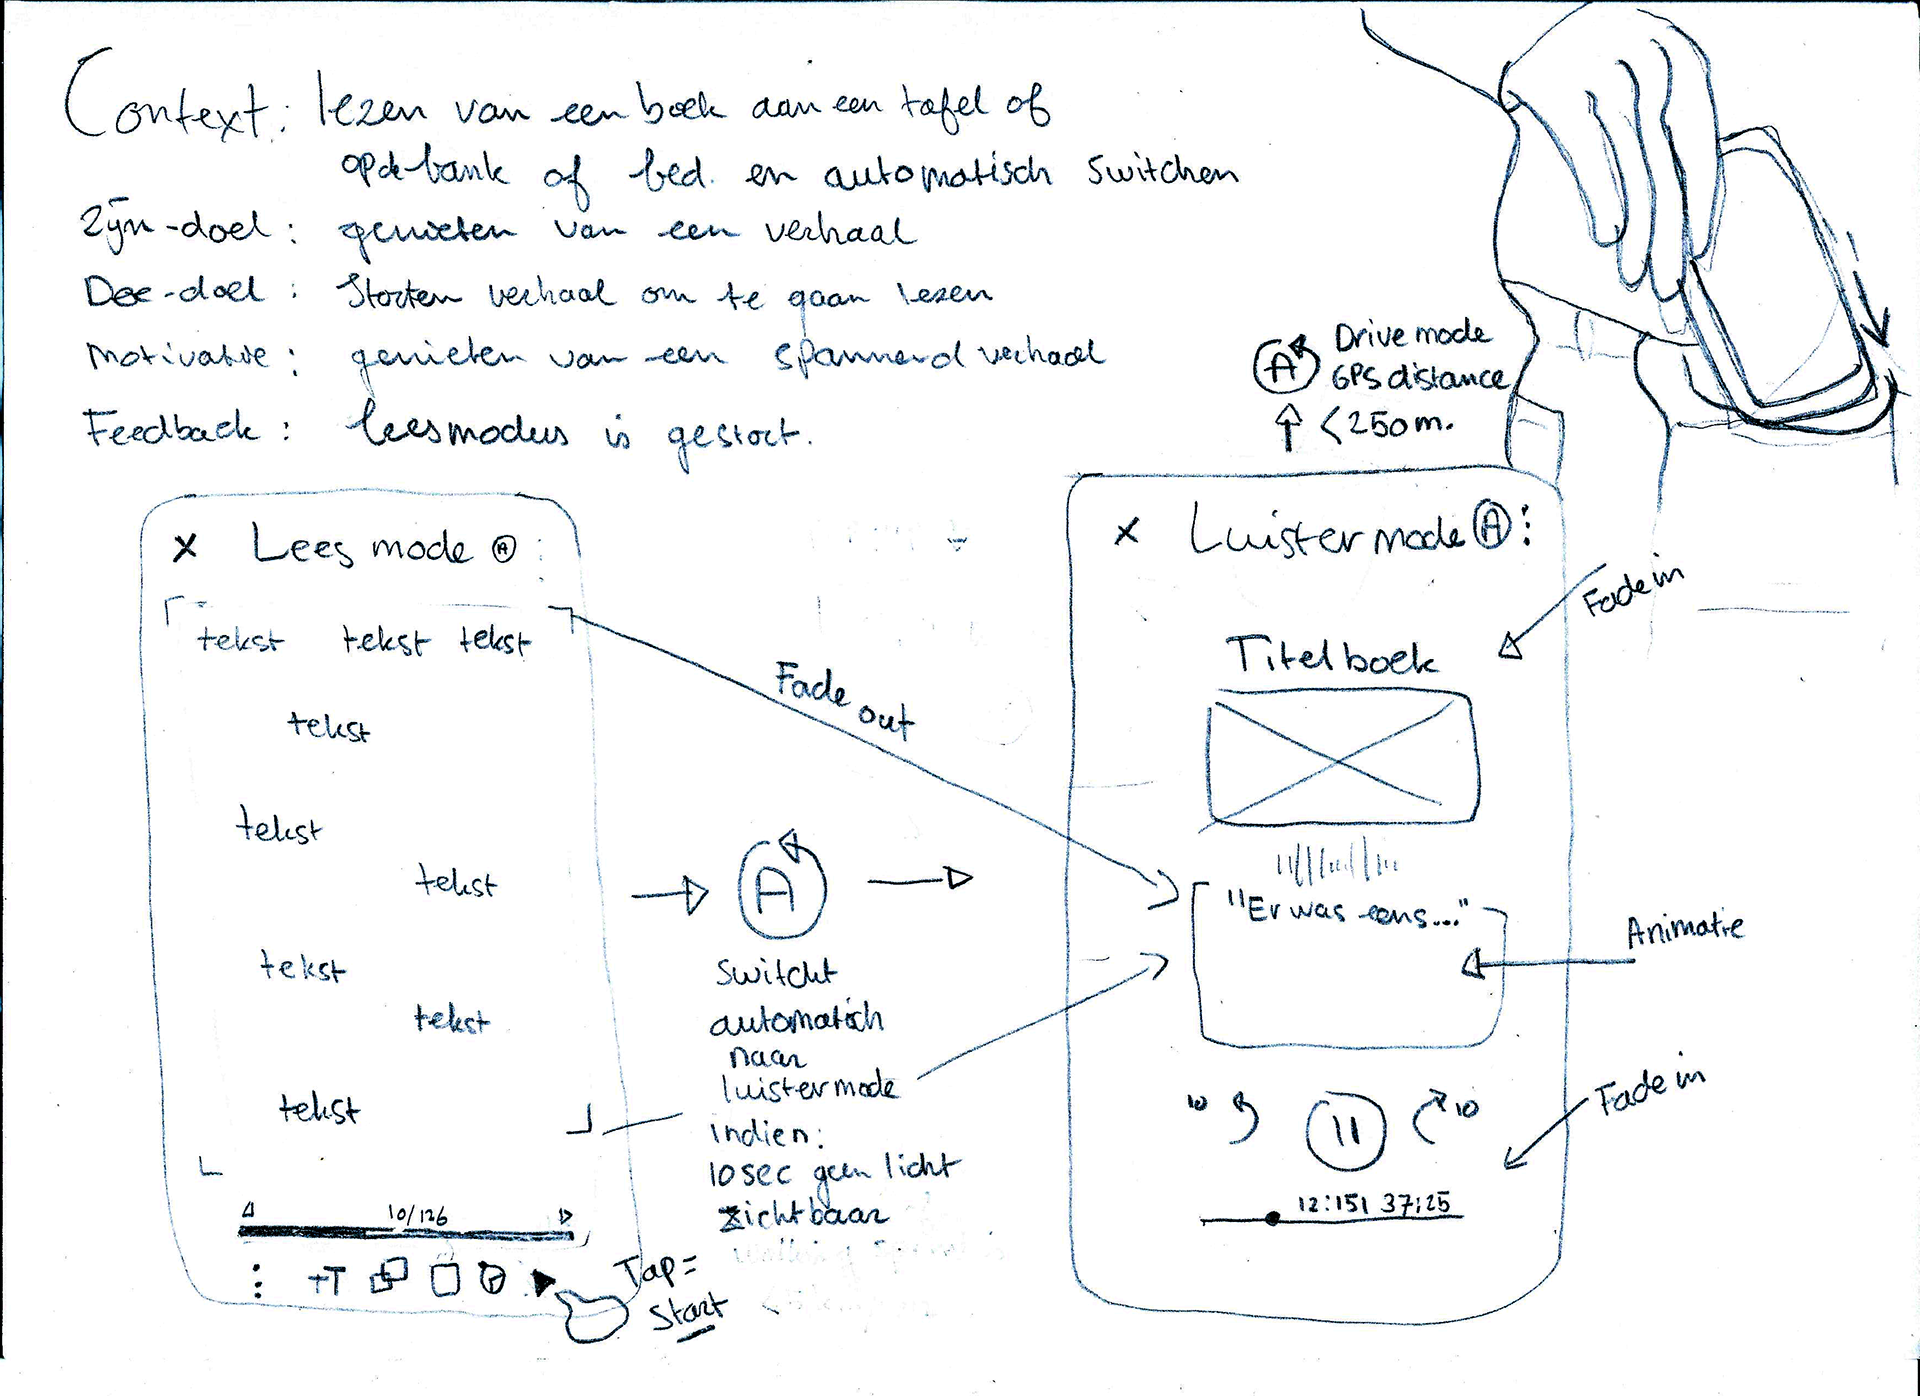 Context: lezen van een boek aan een tafel of
op de bank of bed. en automatisch switchen
Zijn-doel: genieten van een verhaal
Doe-doel: Starten verhaal om te gaan lezen
Motivatie: genieten van een spannend verhaal
Feedback: leesmodus is gestart.
A Drive mode
GPS distance
< 250 m.
X Lees mode A
tekst tekst tekst
tekst
tekst
tekst
tekst
tekst
tekst
10/126
TT
Tap =
Start
Fade out
A
Switcht
automatisch
naar
luistermode
Indien:
10sec geen licht
zichtbaar
X Luistermode A
Fade in
Titel boek
"Er was eens..."
Animatie
10 10
Fade in
12:15| 37:25